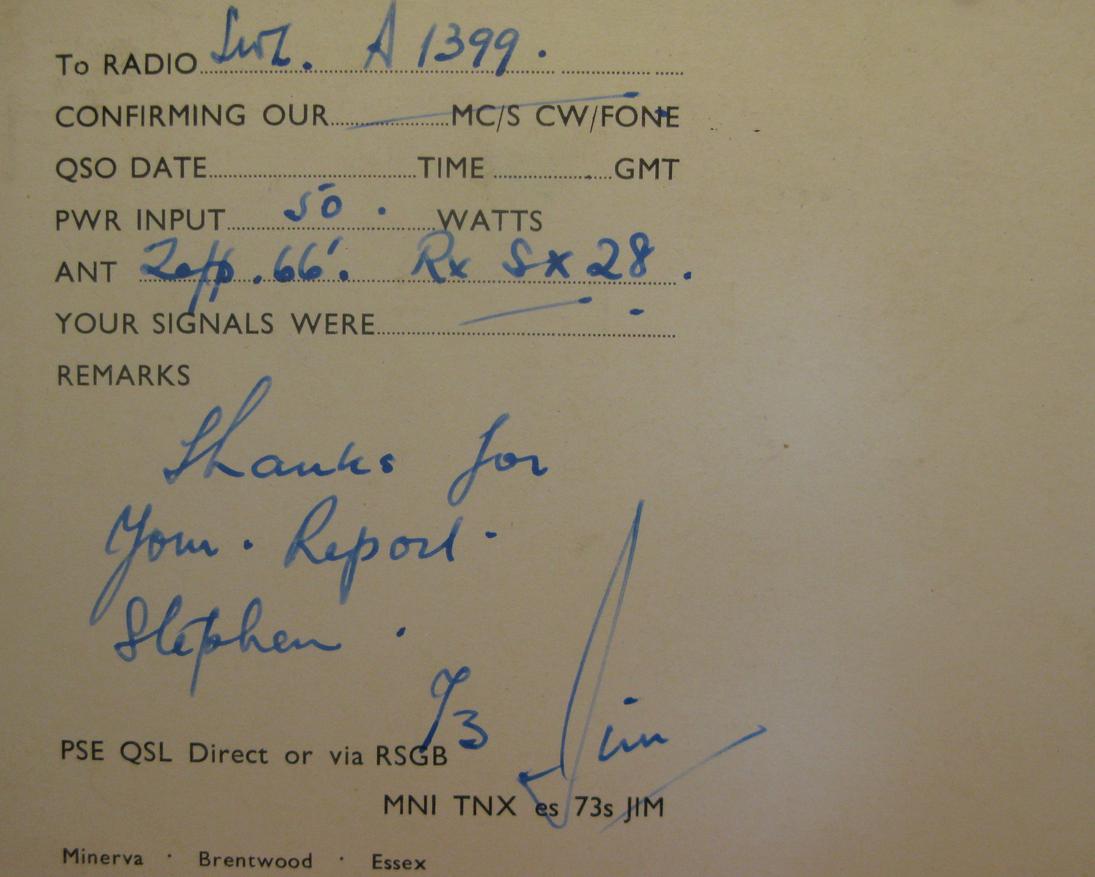 To RADIO Swl. A 1399.
CONFIRMING OUR MC/S CW/FONE
QSO DATE TIME GMT
PWR INPUT 50. WATTS
ANT Zepp. 66'. Rx SX 28.
YOUR SIGNALS WERE
REMARKS
Thanks for
Your. Report.
Stephen.
73 Jim
PSE QSL Direct or via RSGB
MNI TNX es 73s JIM
Minerva · Brentwood · Essex